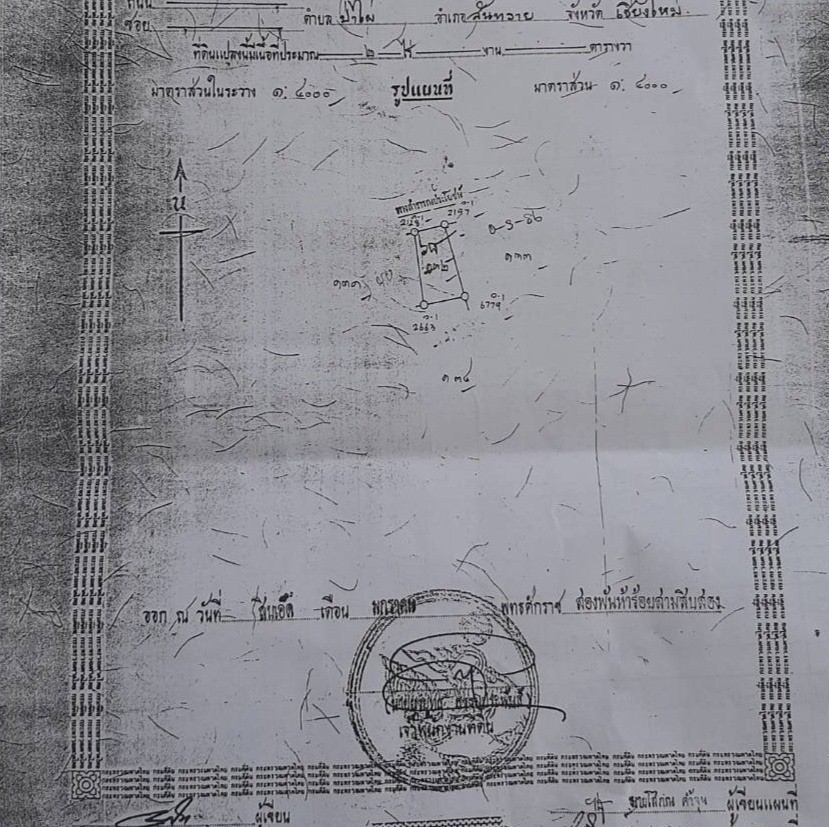 ถนน
ซอย ตำบล ป่าไผ่ อำเภอ สันทราย จังหวัด เชียงใหม่
ที่ดินแปลงนี้มีเนื้อที่ประมาณ ๒ ไร่ งาน ตารางวา
มาตราส่วนในระวาง ๑:๔๐๐๐ รูปแผนที่ มาตราส่วน ๑:๔๐๐๐
น
ทางสาธารณประโยชน์
2197
๑๓๒
๑๓๓
6779
2663
๑๓๔
ออก ณ วันที่ สิบเอ็ด เดือน มกราคม พุทธศักราช สองพันห้าร้อยสามสิบสอง
เจ้าพนักงานที่ดิน
ผู้เขียน ผู้เขียนแผนที่